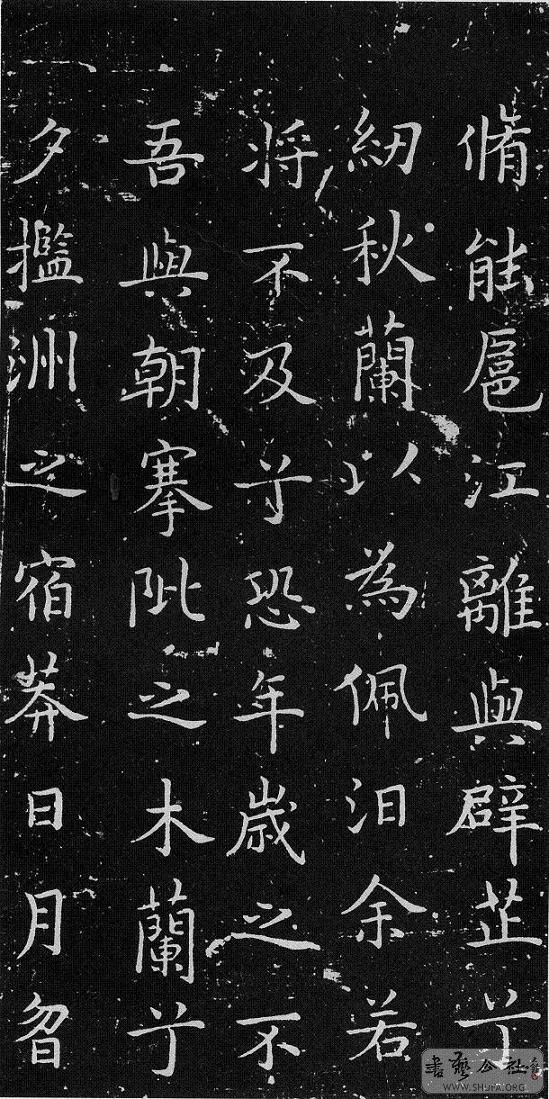 脩能扈江離與辟芷兮
紉秋蘭以為佩汨余若
将不及兮恐年歲之不
吾與朝搴阰之木蘭兮
夕㩜洲之宿莽日月曶
書藝公社
WWW.SHUFA.ORG